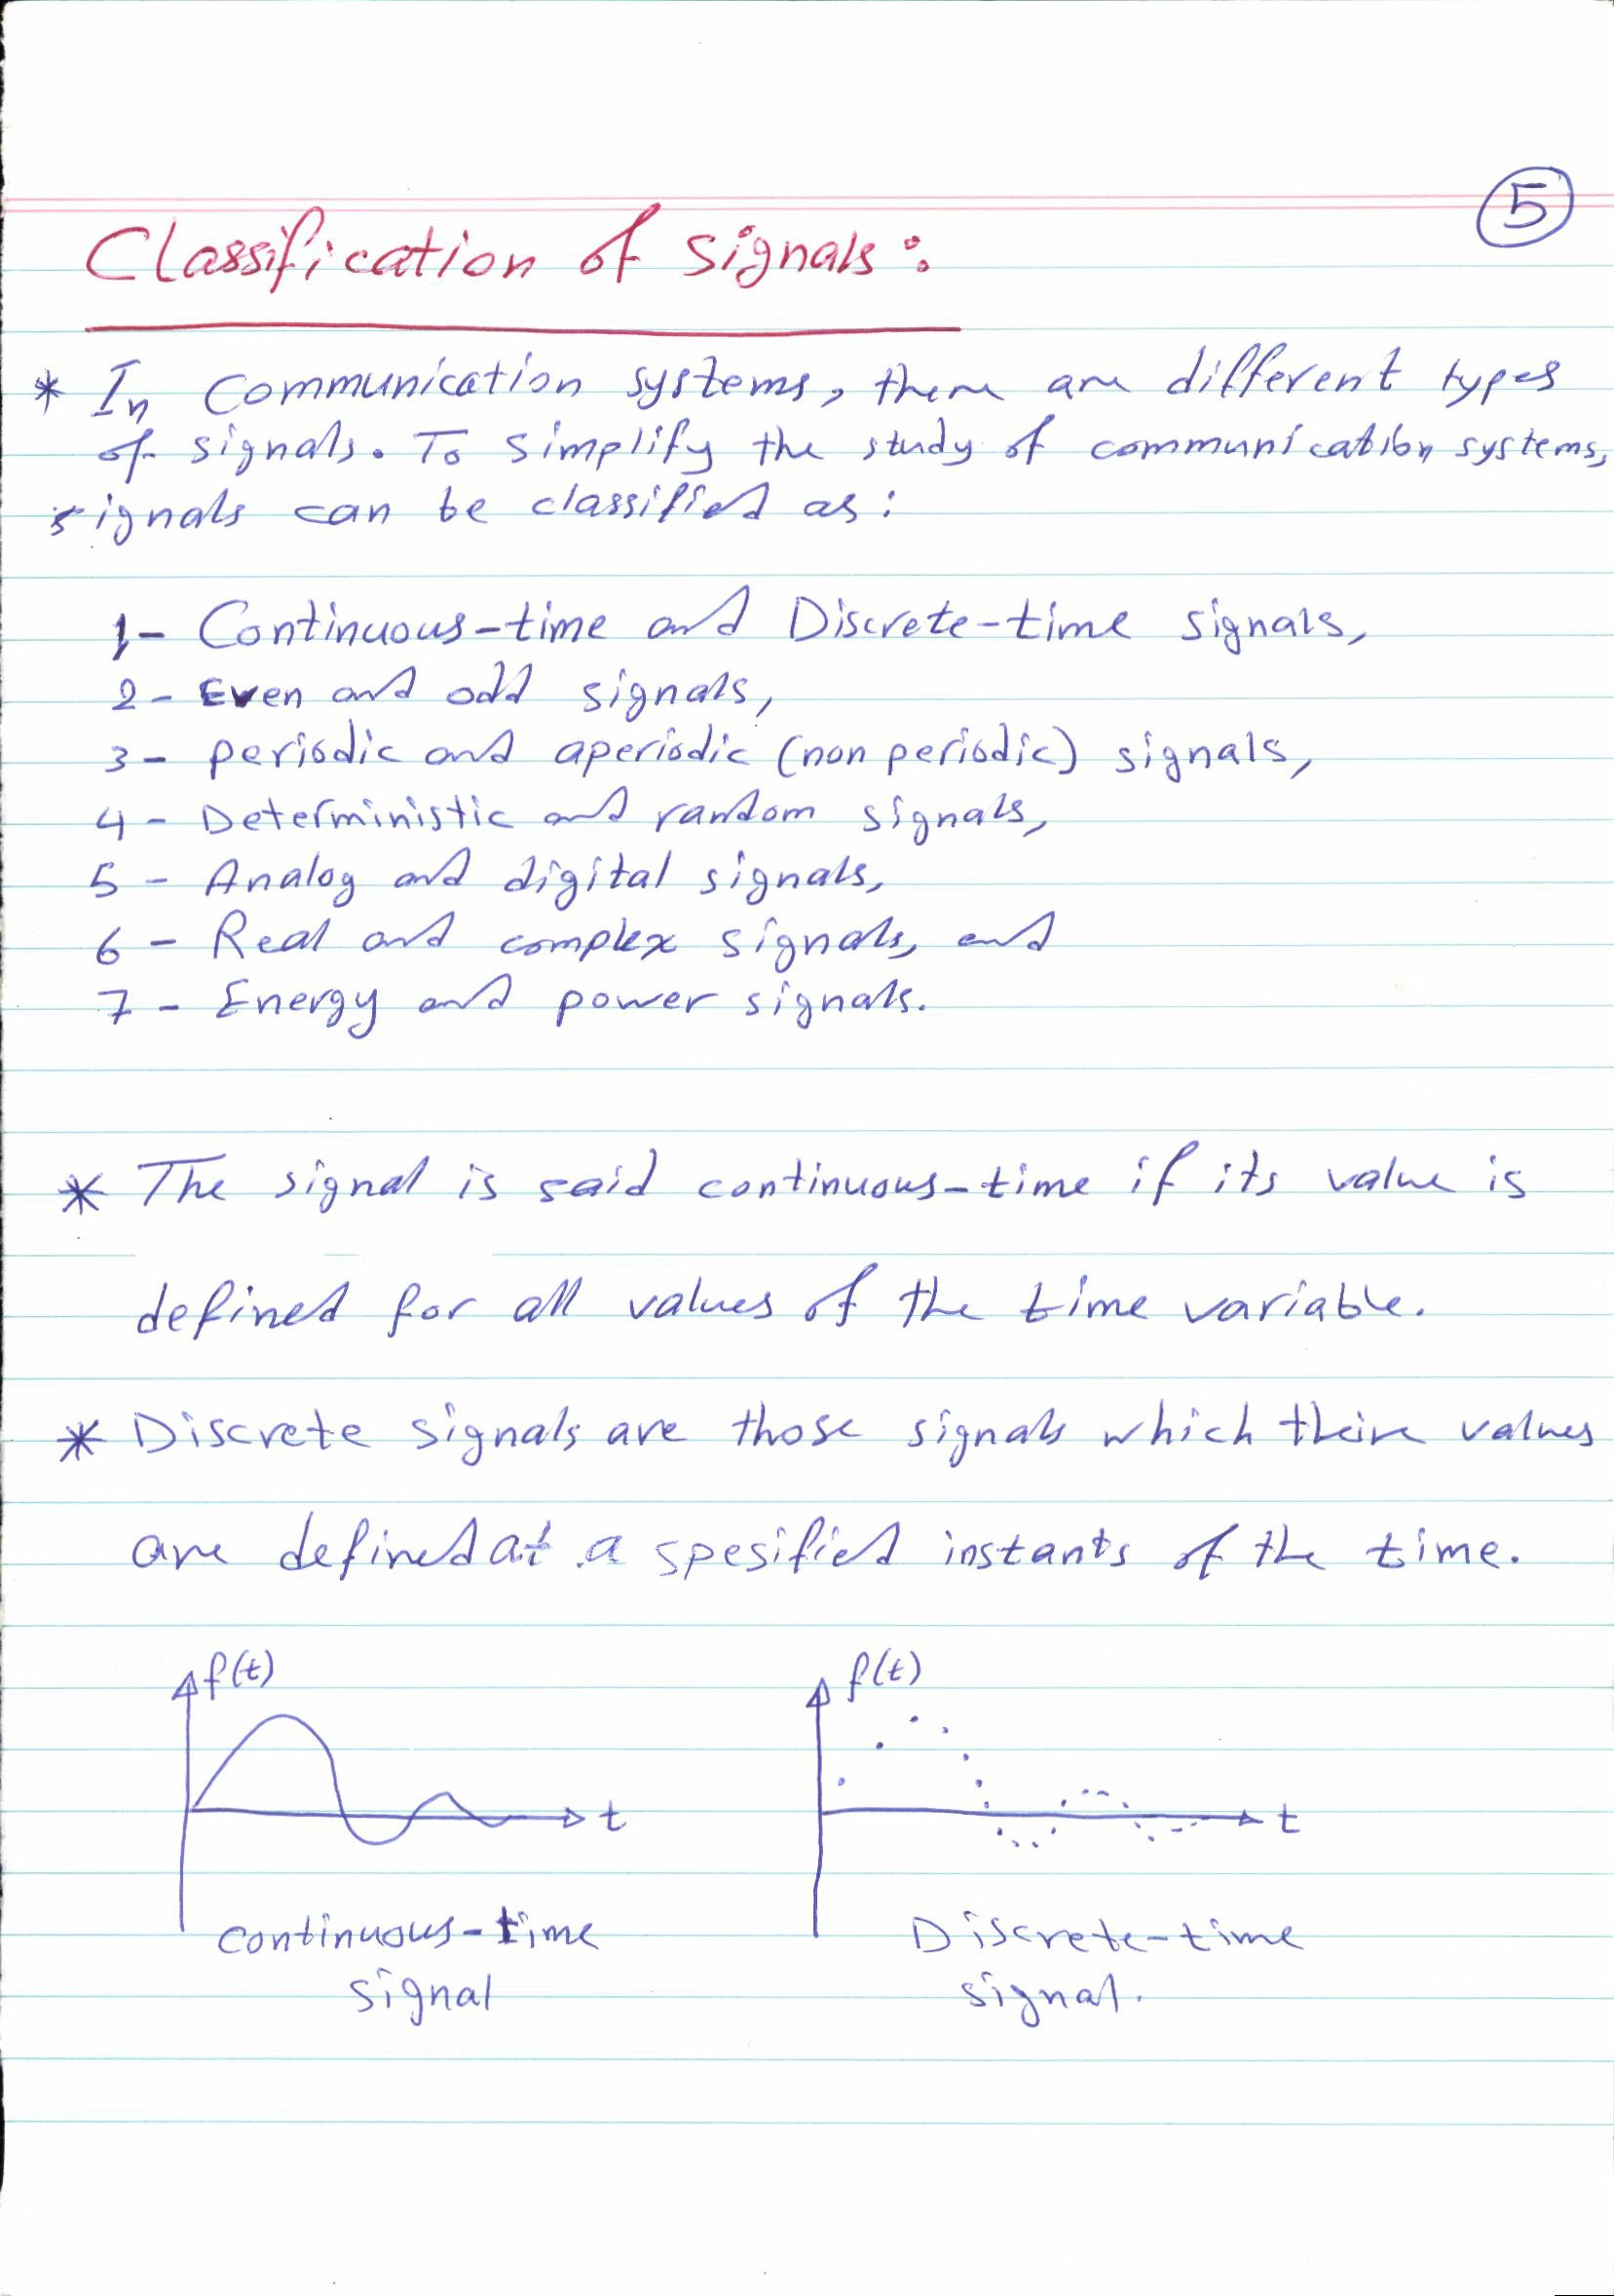 5
Classification of signals:
* In Communication systems, there are different types
of signals. To simplify the study of communication systems,
signals can be classified as:
1- Continuous-time and Discrete-time signals,
2- Even and odd signals,
3- periodic and aperiodic (non periodic) signals,
4- Deterministic and random signals,
5- Analog and digital signals,
6- Real and complex signals, and
7- Energy and power signals.
* The signal is said continuous-time if its value is
defined for all values of the time variable.
* Discrete signals are those signals which their values
are defined at a spesified instants of the time.
f(t) f(t)
t t
continuous-time Discrete-time
signal signal.